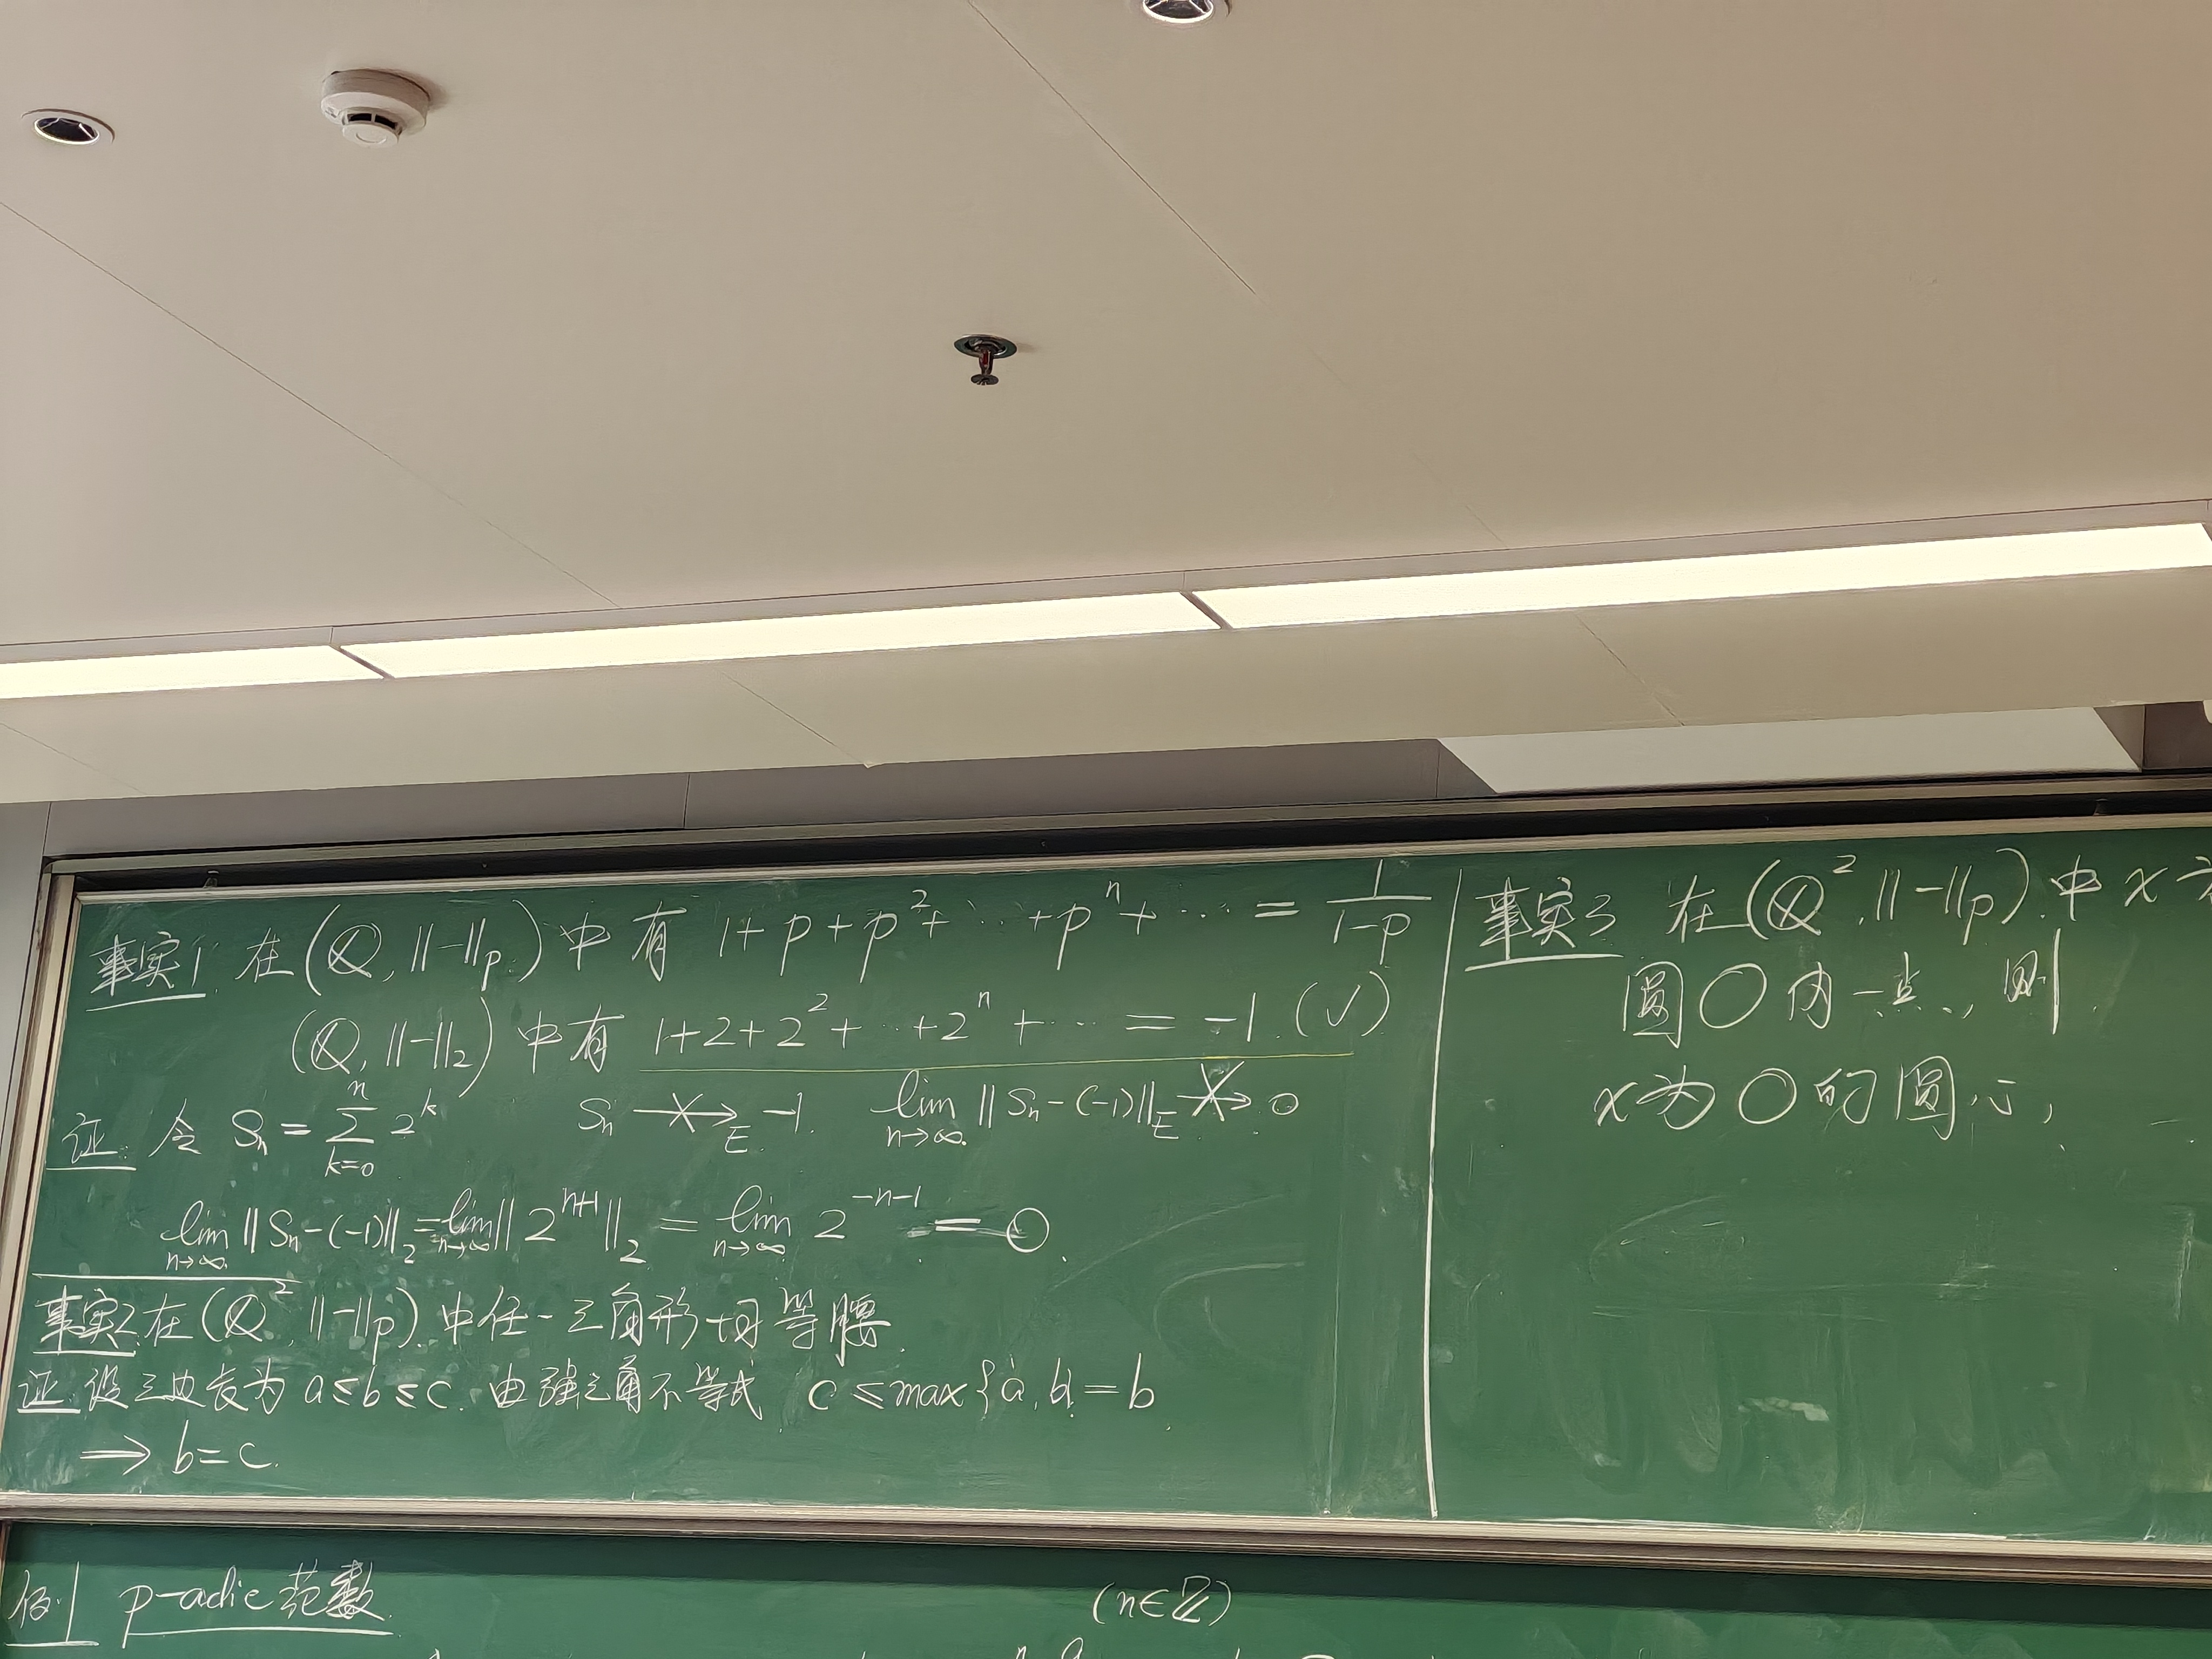 事实1. 在(ℚ, ||-||_p)中有 1+p+p^2+⋯+p^n+⋯ = 1/(1-p)
(ℚ, ||-||_2) 中有 1+2+2^2+⋯+2^n+⋯ = -1. (√)
证. 令 S_n = ∑_{k=0}^{n} 2^k S_n ↛_E -1. lim_{n→∞} ||S_n-(-1)||_E ↛ 0
lim_{n→∞} ||S_n-(-1)||_2 = lim_{n→∞} ||2^{n+1}||_2 = lim_{n→∞} 2^{-n-1} = 0.
事实2. 在(ℚ^2, ||-||_p)中任一三角形均等腰.
证. 设三边长为 a≤b≤c. 由强三角不等式 c ≤ max{a, b} = b.
⟹ b=c.
事实3 在(ℚ^2, ||-||_p)中 x
圆O内一点, 则
x为O的圆心,
例1 p-adic 范数. (n∈ℤ)